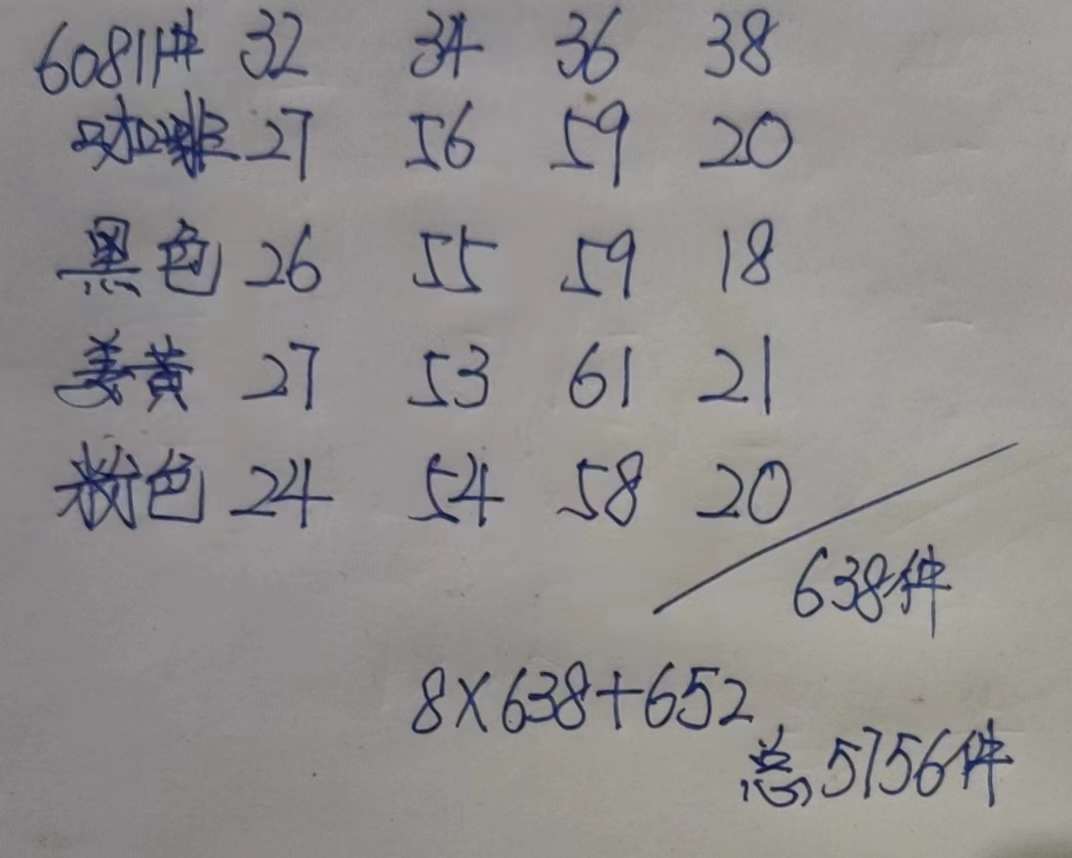 6081# 32 34 36 38
咖啡 27 56 59 20
黑色 26 55 59 18
姜黄 27 53 61 21
粉色 24 54 58 20
638件
8×638+652
总5756件